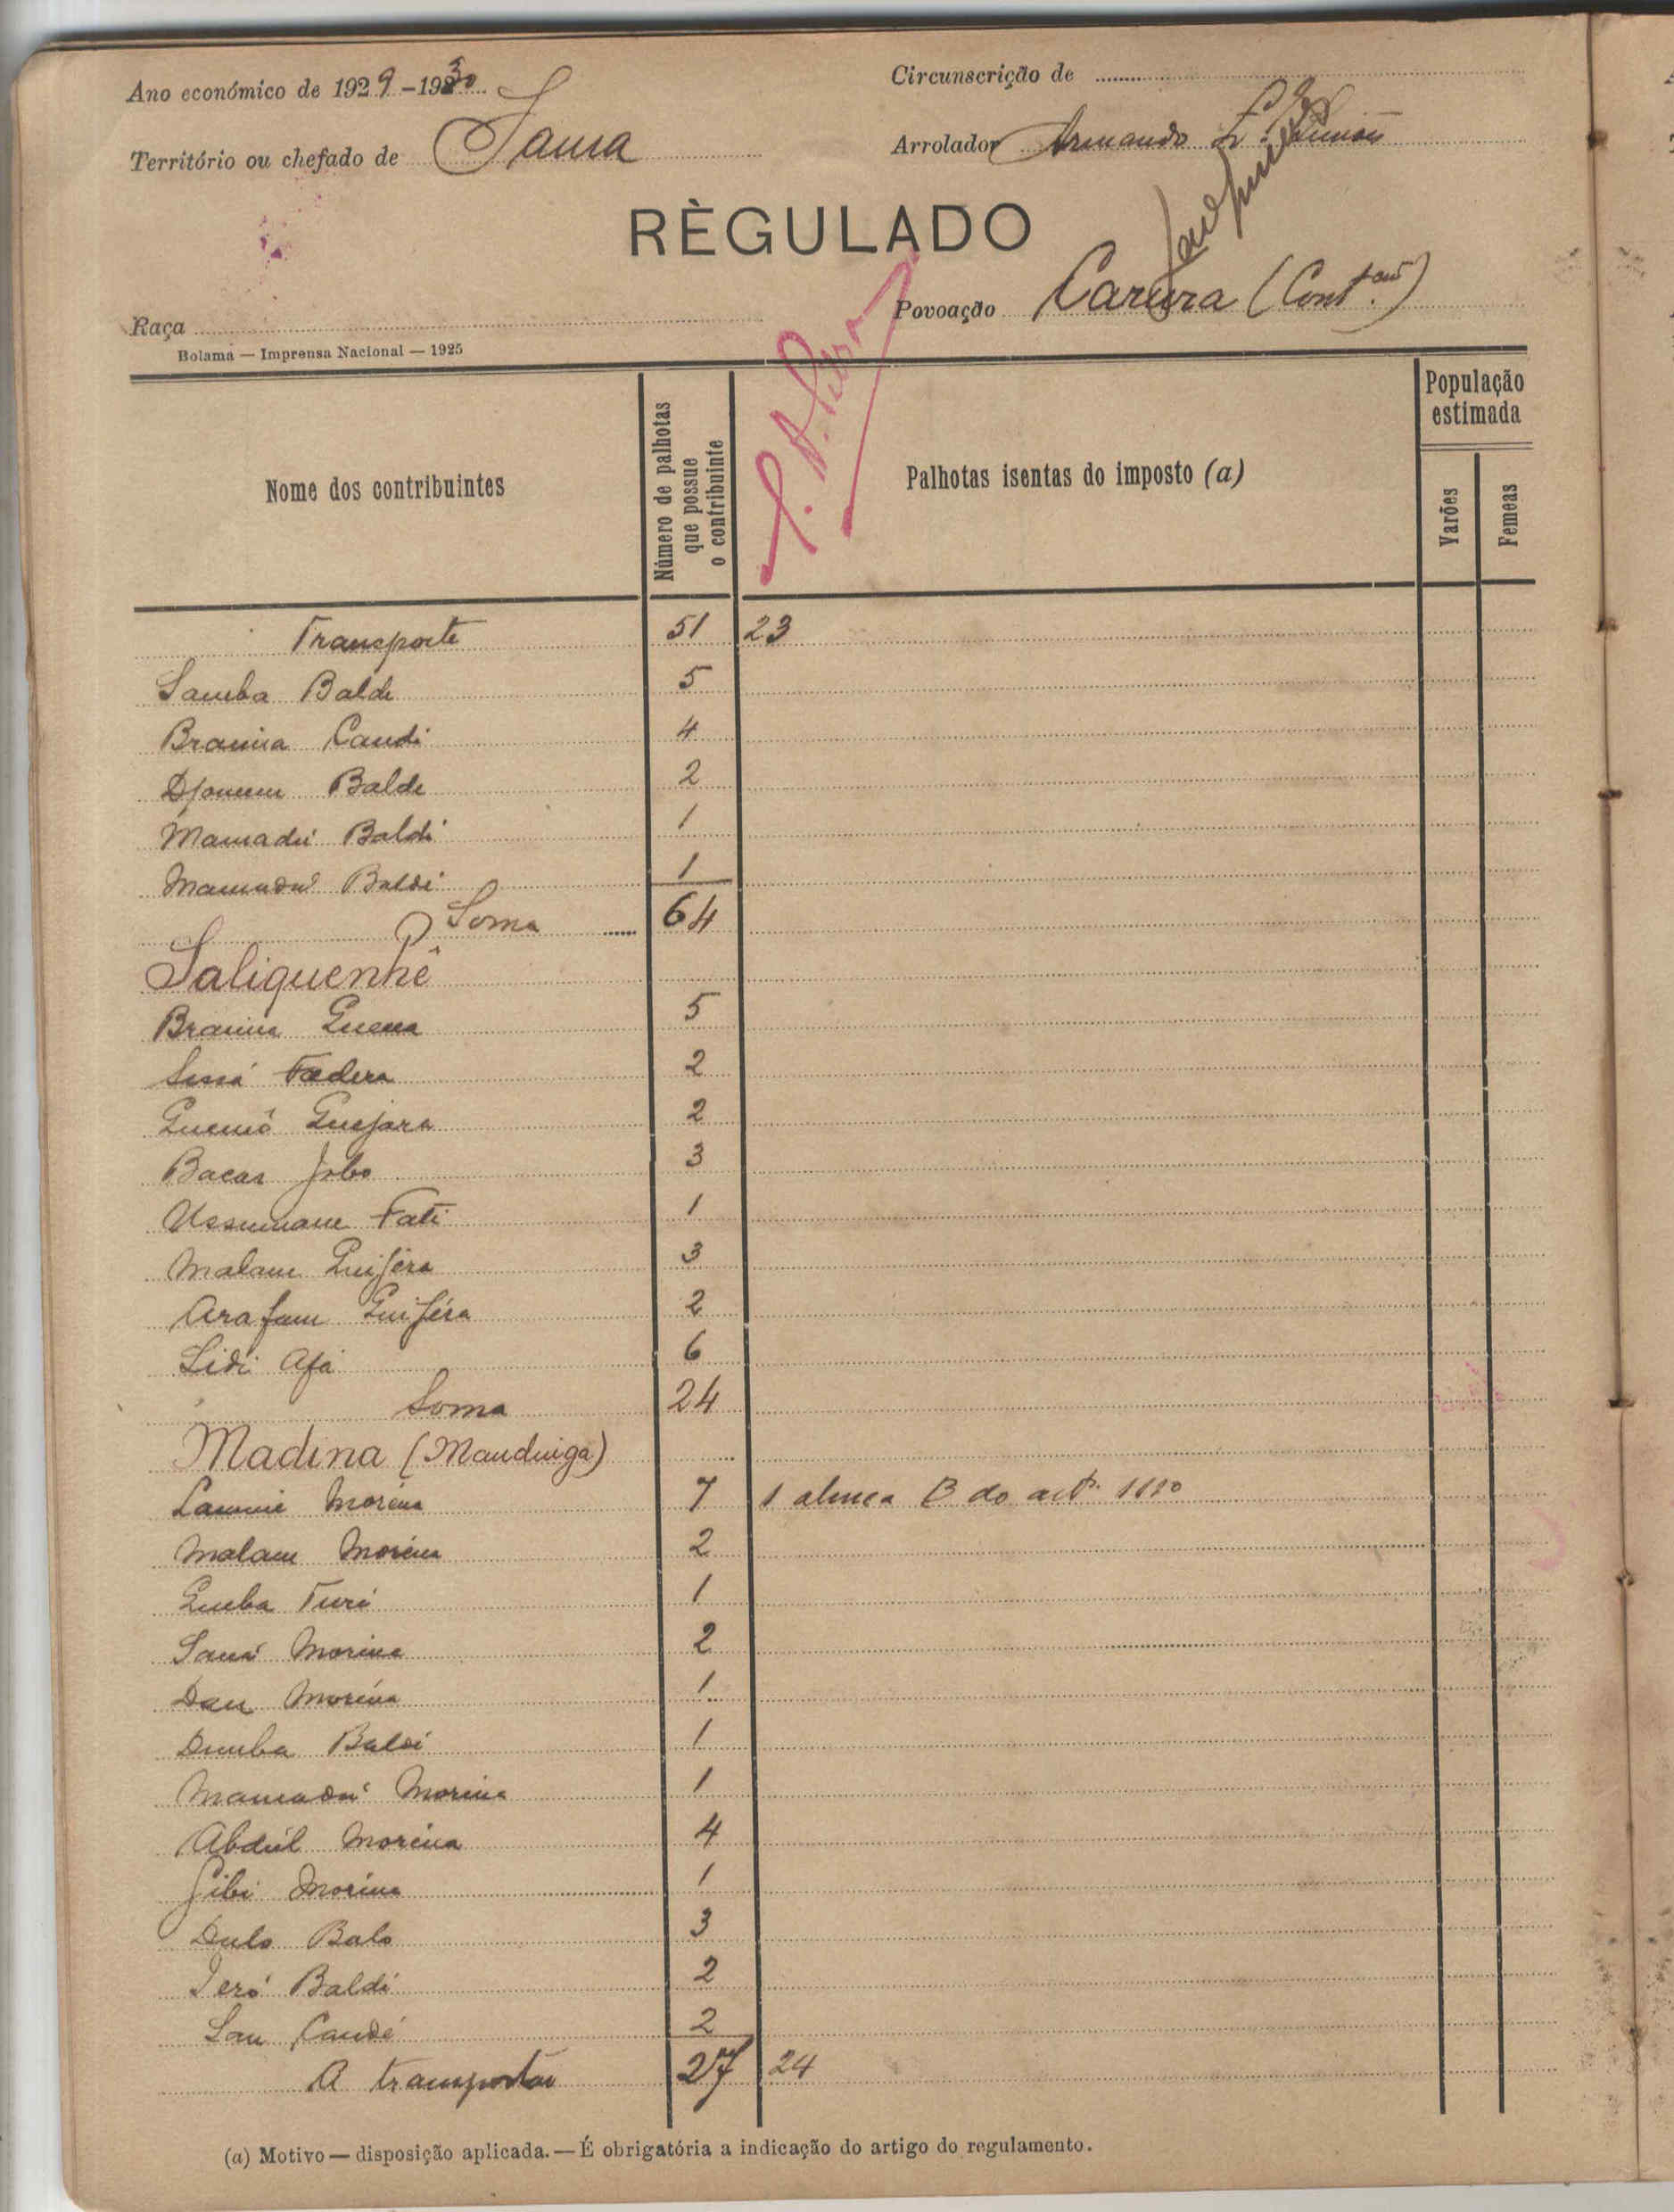 Ano económico de 1929-1930
Circunscrição de
Território ou chefado de Sama
Arrolador Armando
RÈGULADO
Raça
Povoação Carura (Cont.)
Bolama — Imprensa Nacional — 1925
Nome dos contribuintes
Número de palhotas que possue o contribuinte
Palhotas isentas do imposto (a)
População estimada
Varões
Femeas
Transporte 51 23
Samba Balde 5
Braima Candi 4
Balde 2
Mamadú Baldé 1
Mamadú Baldé 1
Soma 64
Saliquenhê
Braima 5
Fadera 2
Guejara 2
Bacar Jobo 3
Ussumane Fati 1
Malam 3
Arafam 2
Sidi Afá 6
Soma 24
Madina (Mandinga)
Lamine Moreira 7 1 alinea B do art.
Malam Moreira 2
Queba Turé 1
Saná Moreira 2
Dau Moreira 1
Demba Baldé 1
Mamadú Moreira 1
Abdúl Moreira 4
Gibi Moreira 1
Dulo Balo 3
Ieró Baldé 2
Sau Candé 2
A transportar 27 24
(a) Motivo — disposição aplicada. — É obrigatória a indicação do artigo do regulamento.